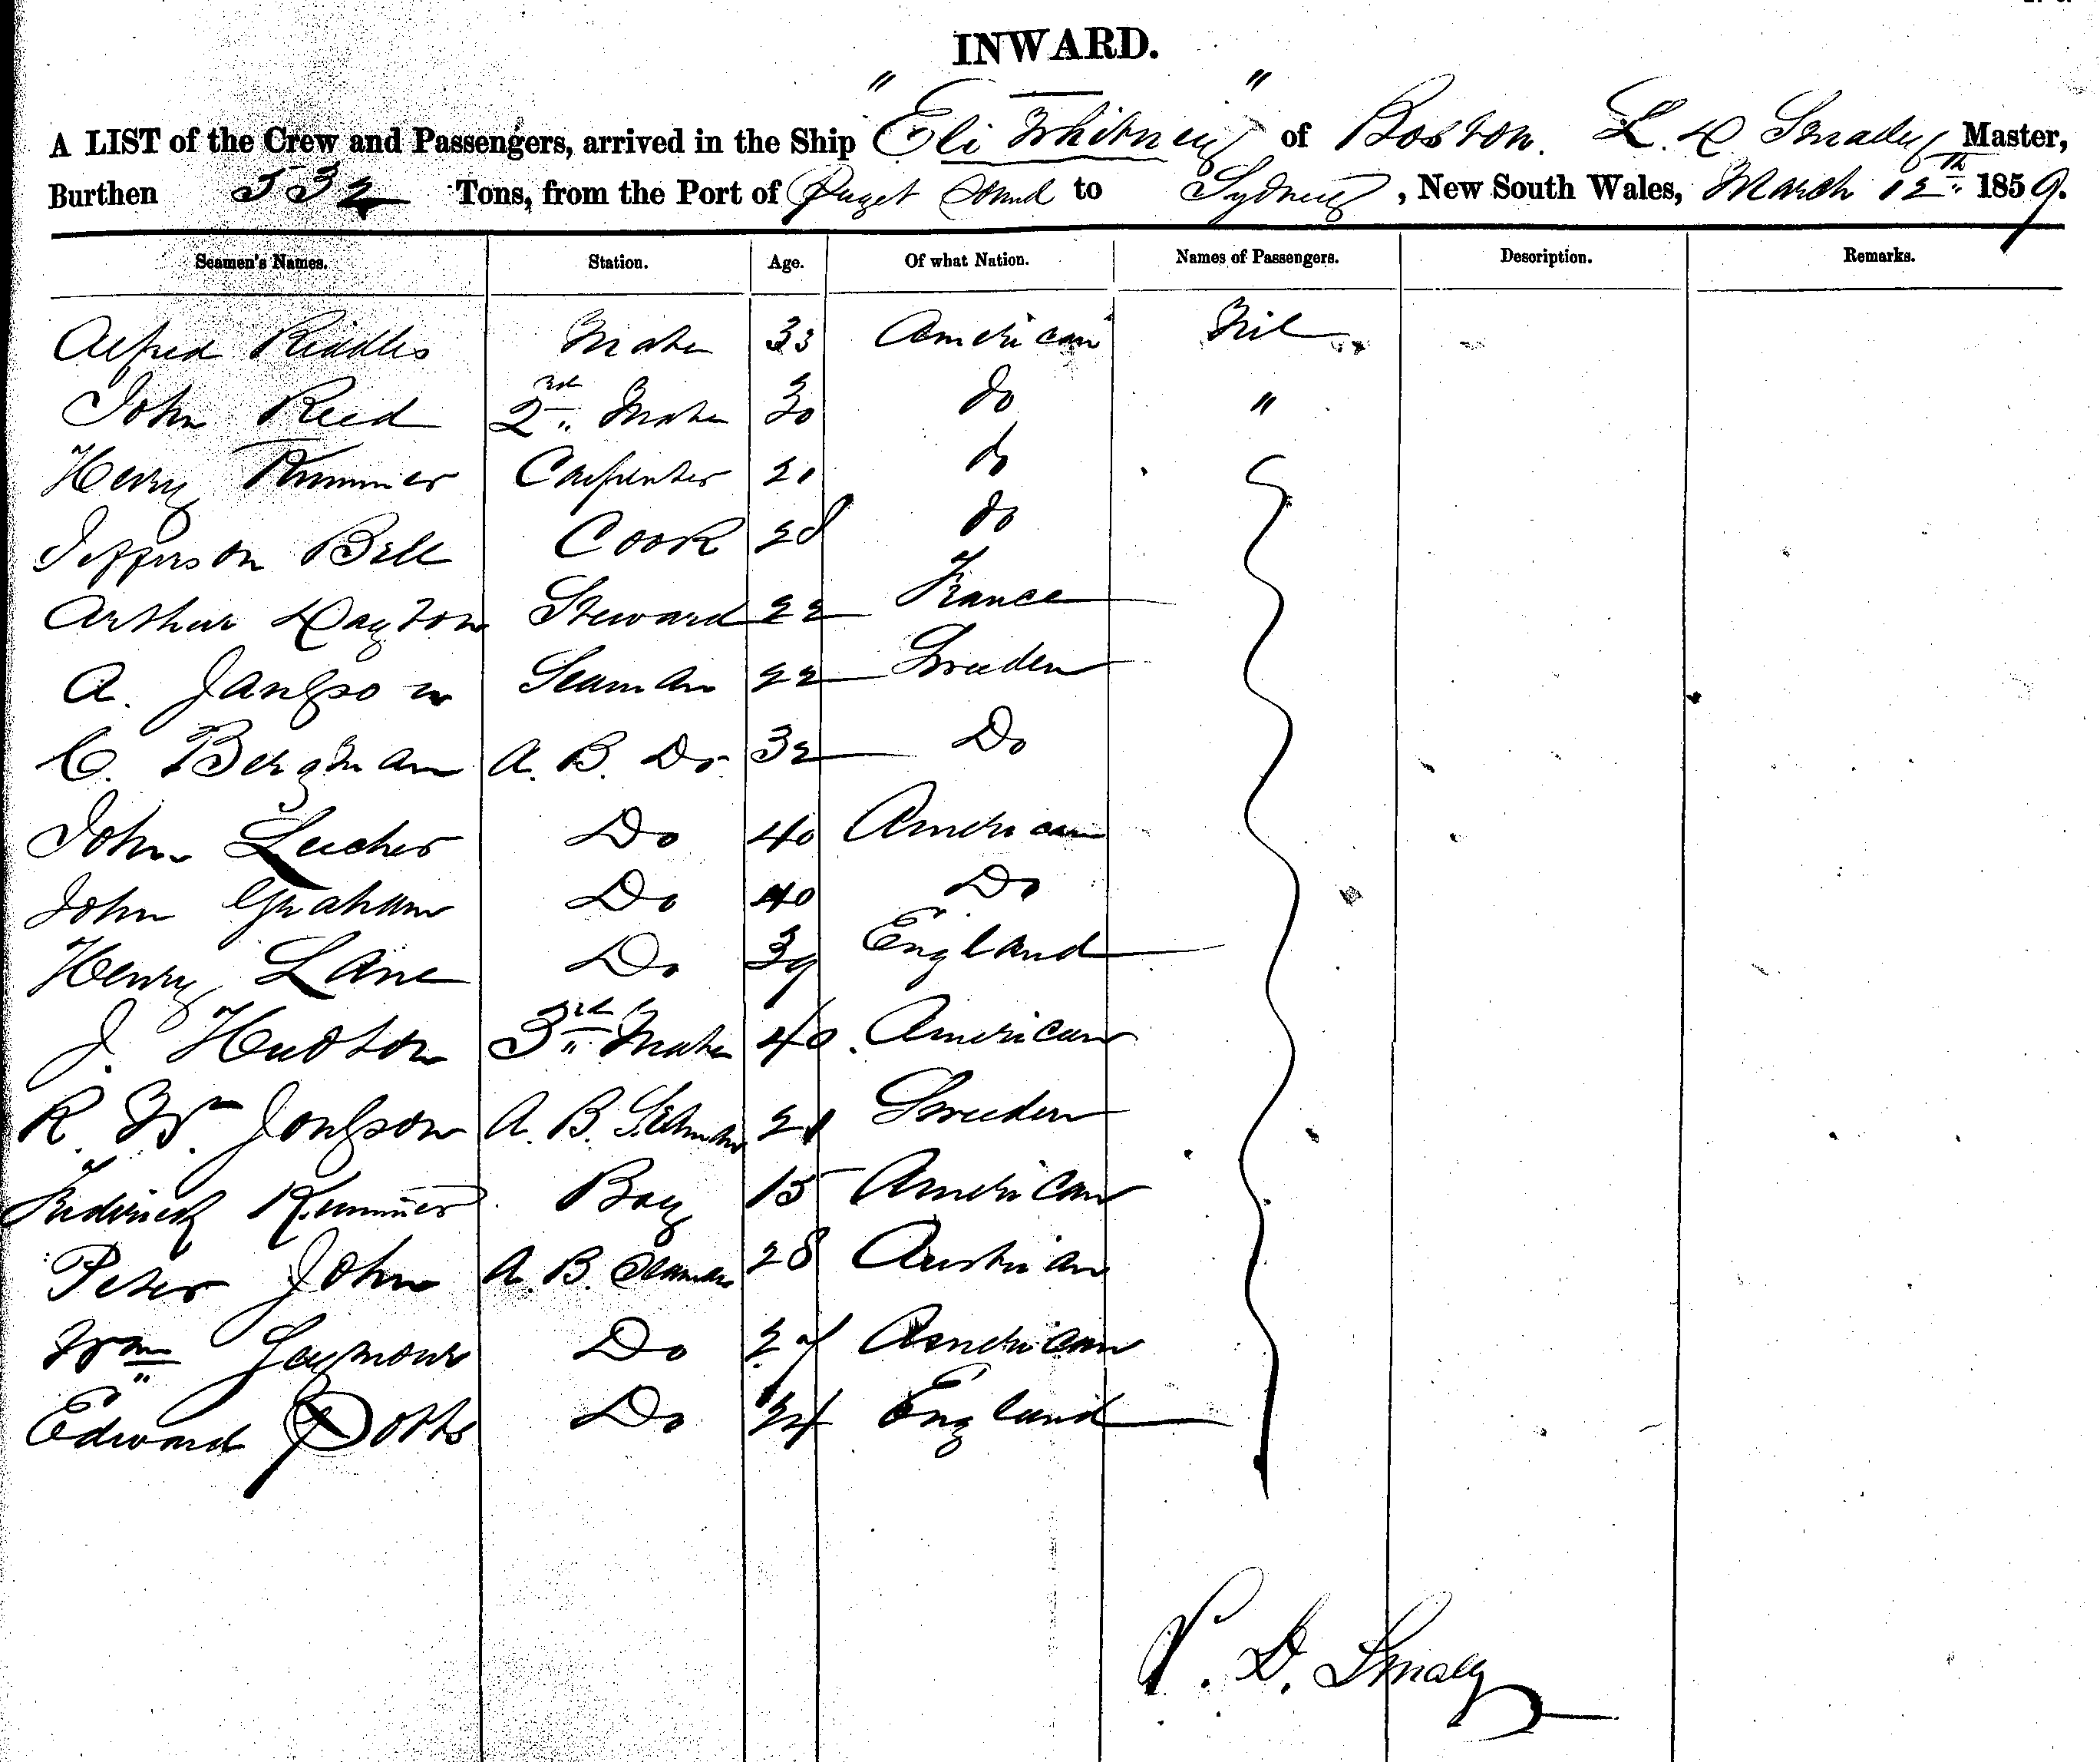 INWARD.
A LIST of the Crew and Passengers, arrived in the Ship "Eli Whitney" of Boston. L. D Smalley Master,
Burthen 532 Tons, from the Port of Puget Sound to Sydney, New South Wales, March 12th 1859.
Seamen's Names. Station. Age. Of what Nation. Names of Passengers. Description. Remarks.
Alfred Riddles Mate 33 American Nil
John Reed 2nd Mate 30 do "
Henry Carpenter 21 do
Jefferson Bell Cook 28 do
Arthur Dayton Steward 22 France
A. Jansson Seaman 22 Sweden
C. Bergman A. B. Do 32 Do
John Do 40 American
John Graham Do 40 Do
Henry Lane Do 39 England
J. Hudson 3rd Mate 40 American
R. Wm Jonsson A. B. Seaman 21 Sweden
Frederick Kummer Boy 15 American
Peter John A. B. Seaman 28 Austrian
Wm Seymour Do 27 American
Edward Potts Do 24 England
D. Smaly